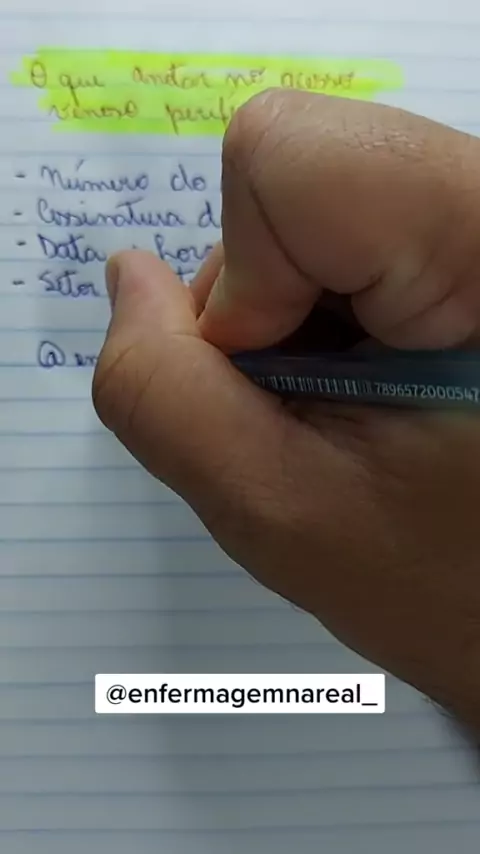 O que anotar no acesso
venoso perif
- Número do
- Assinatura d
- Data e hora
- Setor
@en
7896572000547
@enfermagemnareal_